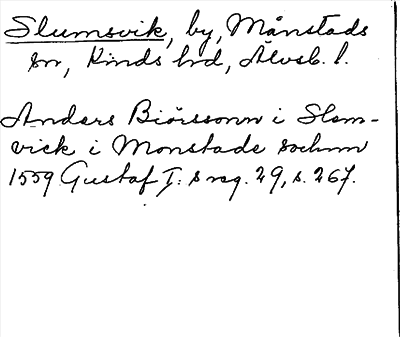 Slumsvik, by, Månstads
sn, Kinds hd, Älvsb. l.
Anders Biörssonn i Slom-
vick i Monstade sochnn
1559 Gustaf I:s reg. 29, s. 267.